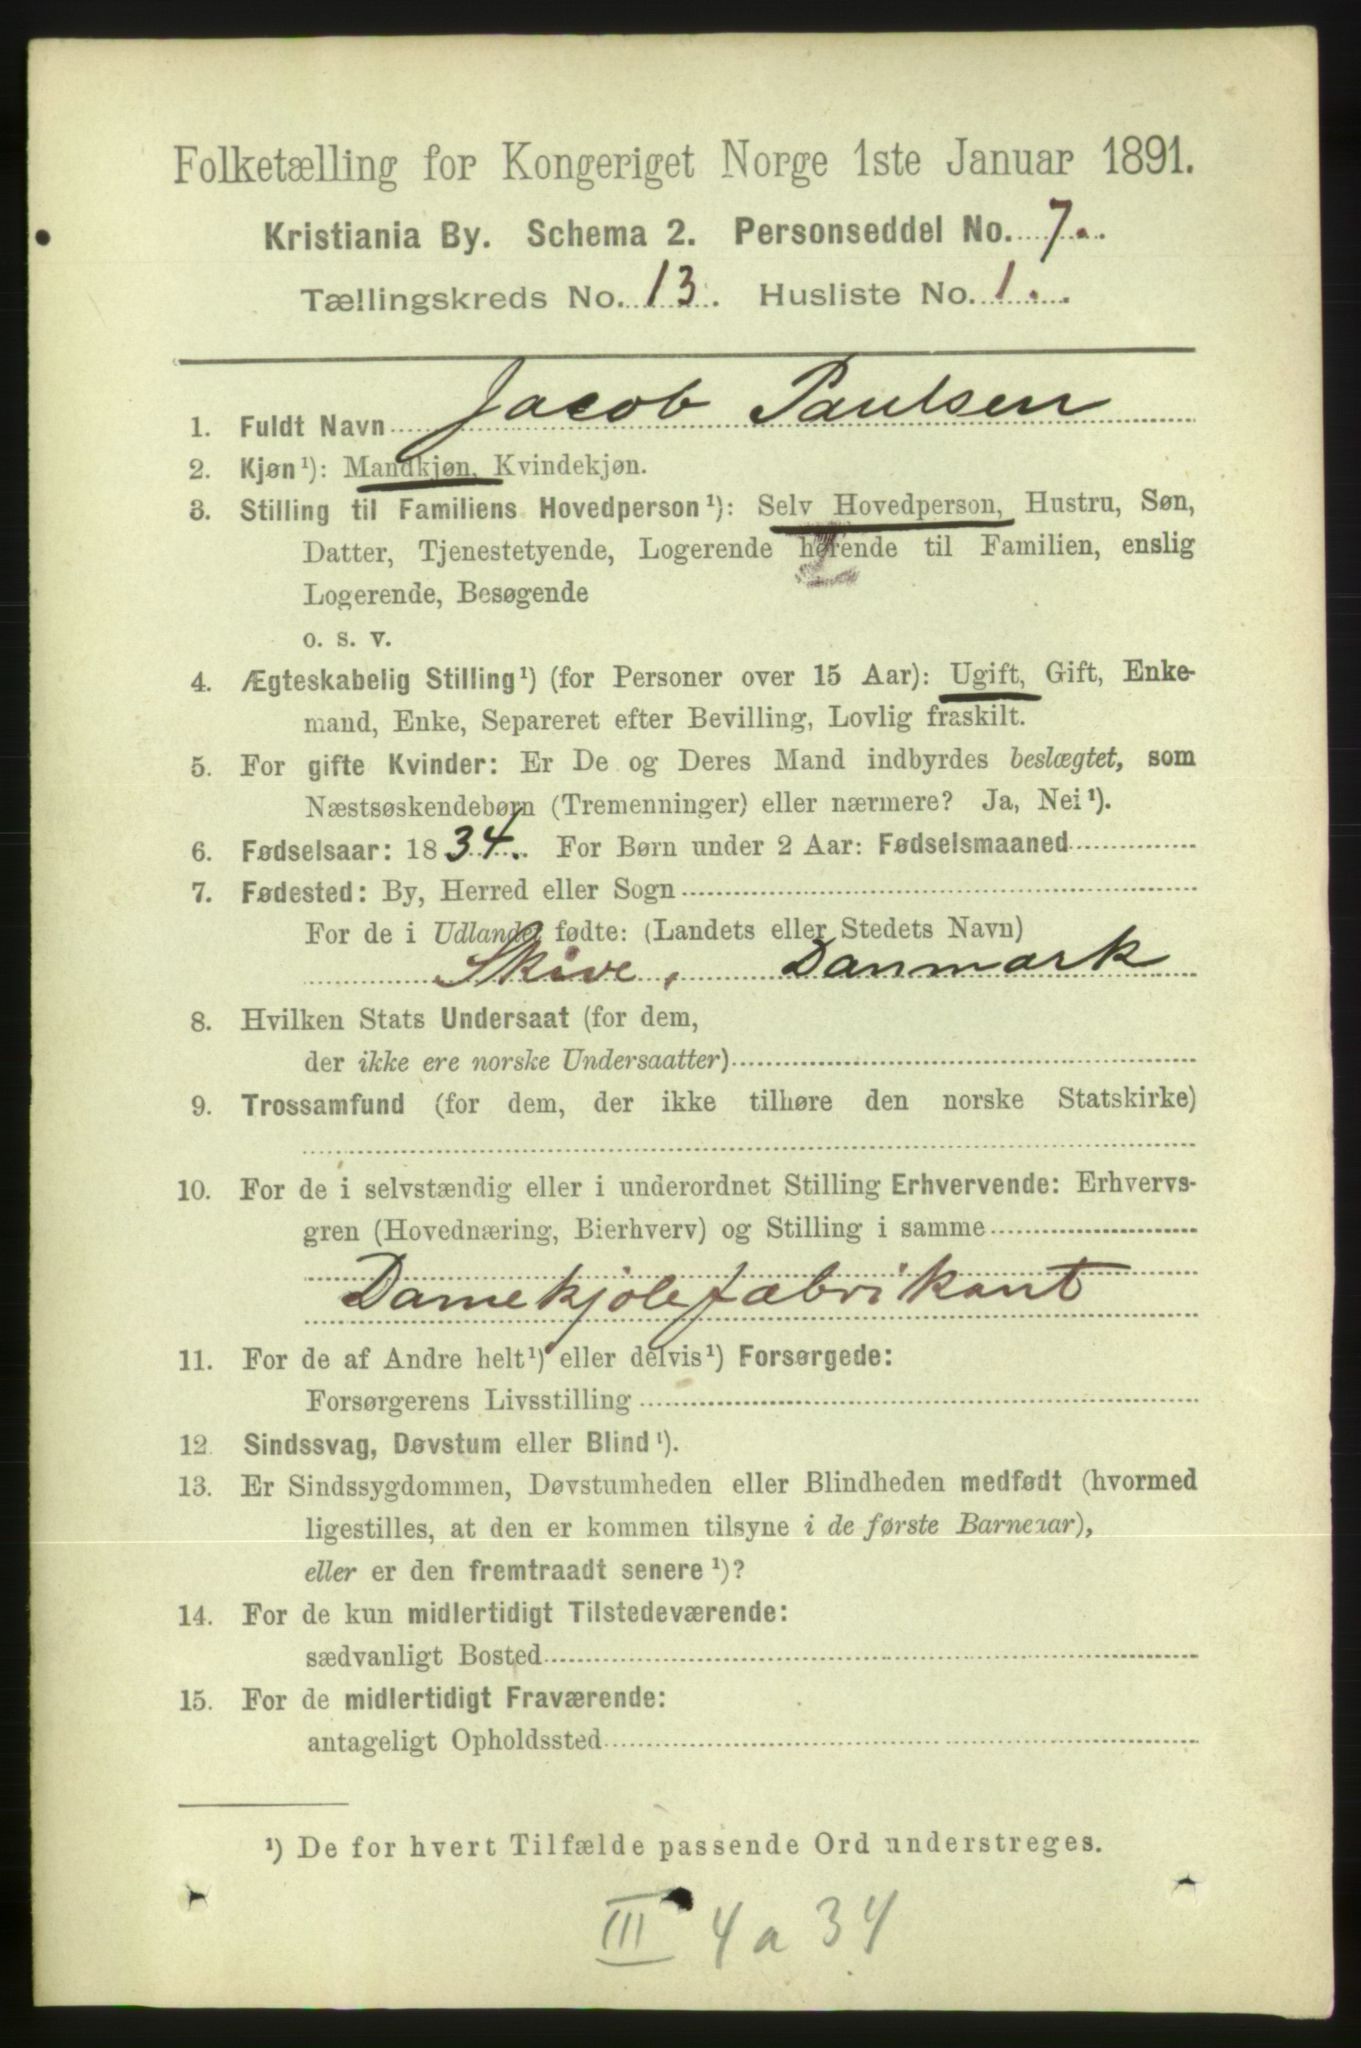 Folketælling for Kongeriget Norge 1ste Januar 1891.
Kristiania By. Schema 2. Personseddel No. 7.
Tællingskreds No. 13. Husliste No. 1.
1. Fuldt Navn Jacob Paulsen
2. Kjøn¹): Mandkjøn, Kvindekjøn.
3. Stilling til Familiens Hovedperson¹): Selv Hovedperson, Hustru, Søn,
Datter, Tjenestetyende, Logerende hørende til Familien, enslig
Logerende, Besøgende
o. s. v.
4. Ægteskabelig Stilling¹) (for Personer over 15 Aar): Ugift, Gift, Enke-
mand, Enke, Separeret efter Bevilling, Lovlig fraskilt.
5. For gifte Kvinder: Er De og Deres Mand indbyrdes beslægtet, som
Næstsøskendebørn (Tremenninger) eller nærmere? Ja, Nei¹).
6. Fødselsaar: 1834. For Børn under 2 Aar: Fødselsmaaned
7. Fødested: By, Herred eller Sogn
For de i Udlandet fødte: (Landets eller Stedets Navn)
Skive, Danmark
8. Hvilken Stats Undersaat (for dem,
der ikke ere norske Undersaatter)
9. Trossamfund (for dem, der ikke tilhøre den norske Statskirke)
10. For de i selvstændig eller i underordnet Stilling Erhvervende: Erhvervs-
gren (Hovednæring, Bierhverv) og Stilling i samme
Damekjolefabrikant
11. For de af Andre helt¹) eller delvis¹) Forsørgede:
Forsørgerens Livsstilling
12. Sindssvag, Døvstum eller Blind¹).
13. Er Sindssygdommen, Døvstumheden eller Blindheden medfødt (hvormed
ligestilles, at den er kommen tilsyne i de første Barneaar),
eller er den fremtraadt senere¹)?
14. For de kun midlertidigt Tilstedeværende:
sædvanligt Bosted
15. For de midlertidigt Fraværende:
antageligt Opholdssted
¹) De for hvert Tilfælde passende Ord understreges.
III 4a 34